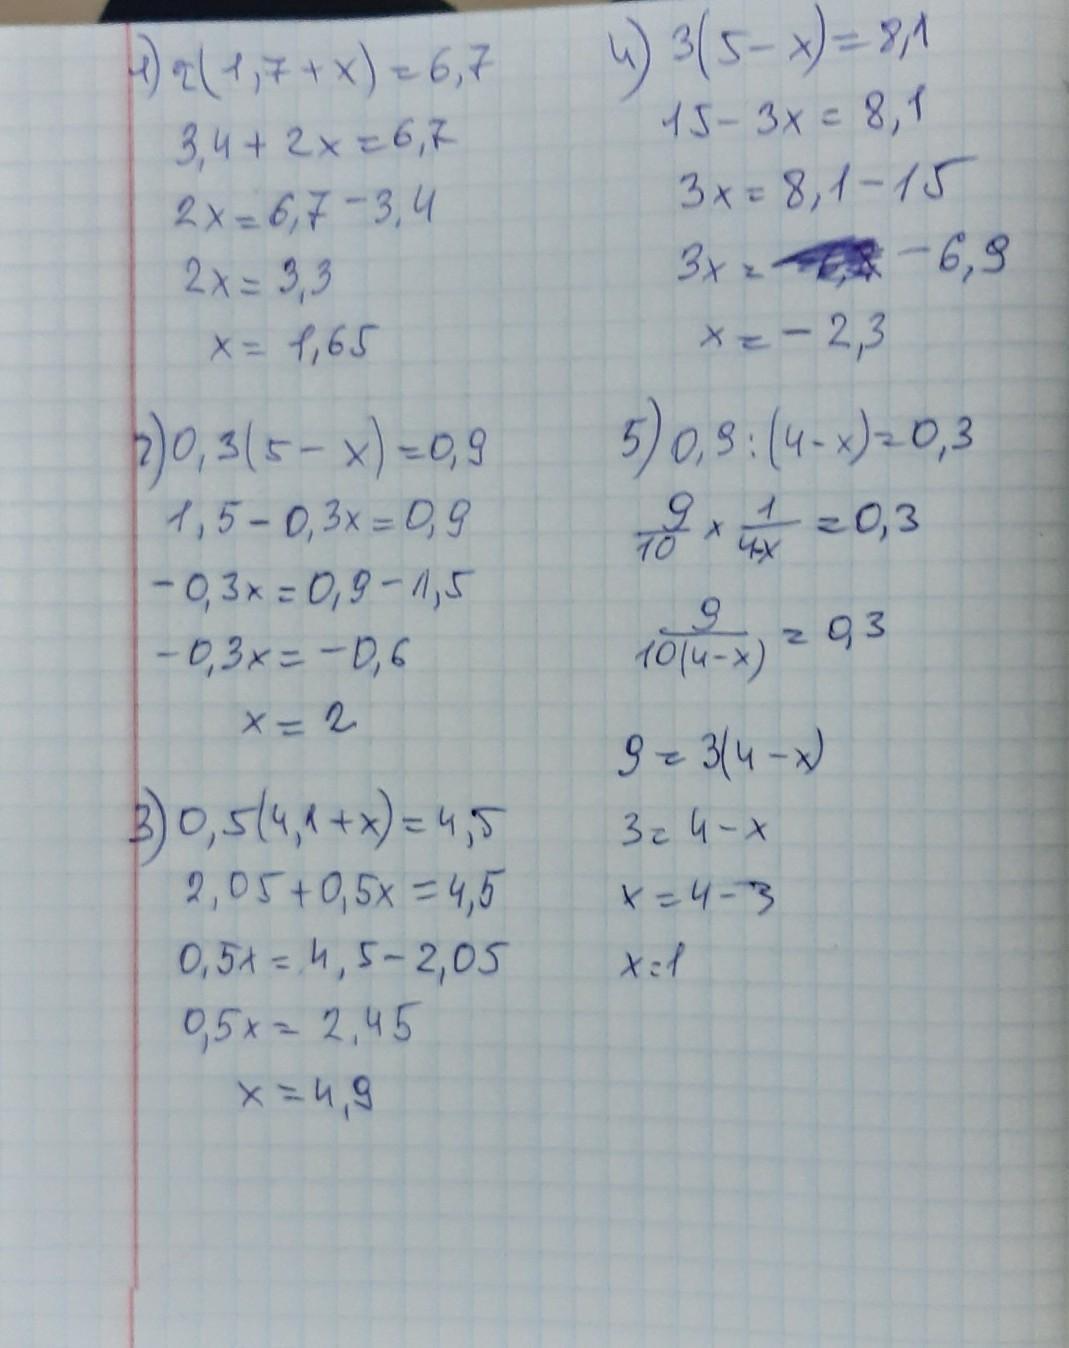 1) 2(1,7+x)=6,7
3,4+2x=6,7
2x=6,7-3,4
2x=3,3
x=1,65
2) 0,3(5-x)=0,9
1,5-0,3x=0,9
-0,3x=0,9-1,5
-0,3x=-0,6
x=2
3) 0,5(4,1+x)=4,5
2,05+0,5x=4,5
0,5x=4,5-2,05
0,5x=2,45
x=4,9
4) 3(5-x)=8,1
15-3x=8,1
3x=8,1-15
3x=-6,9
x=-2,3
5) 0,9:(4-x)=0,3
9/10 x 1/4-x =0,3
9/10(4-x) =0,3
9=3(4-x)
3=4-x
x=4-3
x=1